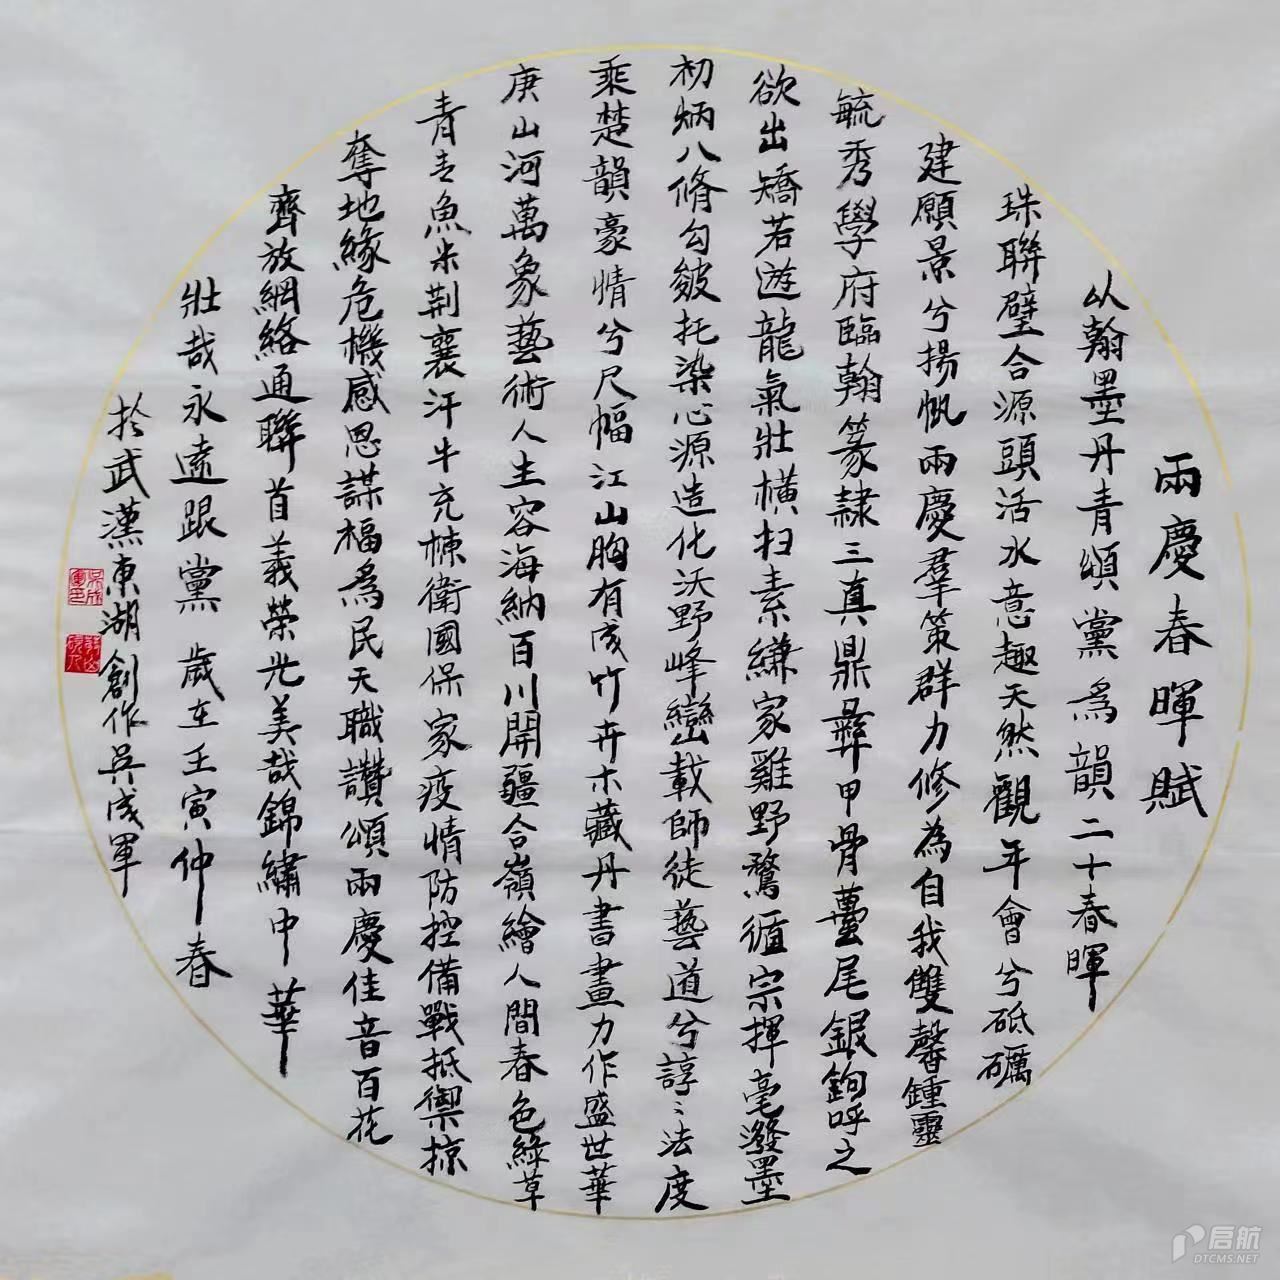 兩慶春暉賦
以翰墨丹青頌黨為韻二十春暉
珠聯璧合源頭活水意趣天然觀年會兮砥礪
建願景兮揚帆兩慶羣策群力修為自我雙馨鍾靈
毓秀學府臨翰篆隸三真鼎彝甲骨蠆尾銀鉤呼之
欲出矯若遊龍氣壯橫扫素縑家雞野鶩循宗揮毫潑墨
初炳八脩勾皴托染心源造化沃野峰巒載師徒藝道兮諄〻法度
乘楚韻豪情兮尺幅江山胸有成竹卉木藏丹書畫力作盛世華
庚山河萬象藝術人生容海納百川開疆合嶺繪人間春色綠草
青青魚米荆襄汗牛充棟衛國保家疫情防控備戰抵禦掠
奪地緣危機感恩謀福為民天職讚頌兩慶佳音百花
齊放網絡通聯首義榮光美哉錦繡中華
壯哉永遠跟黨 歲在壬寅仲春
於武漢東湖創作吳成軍
启航
DTCMS.NET